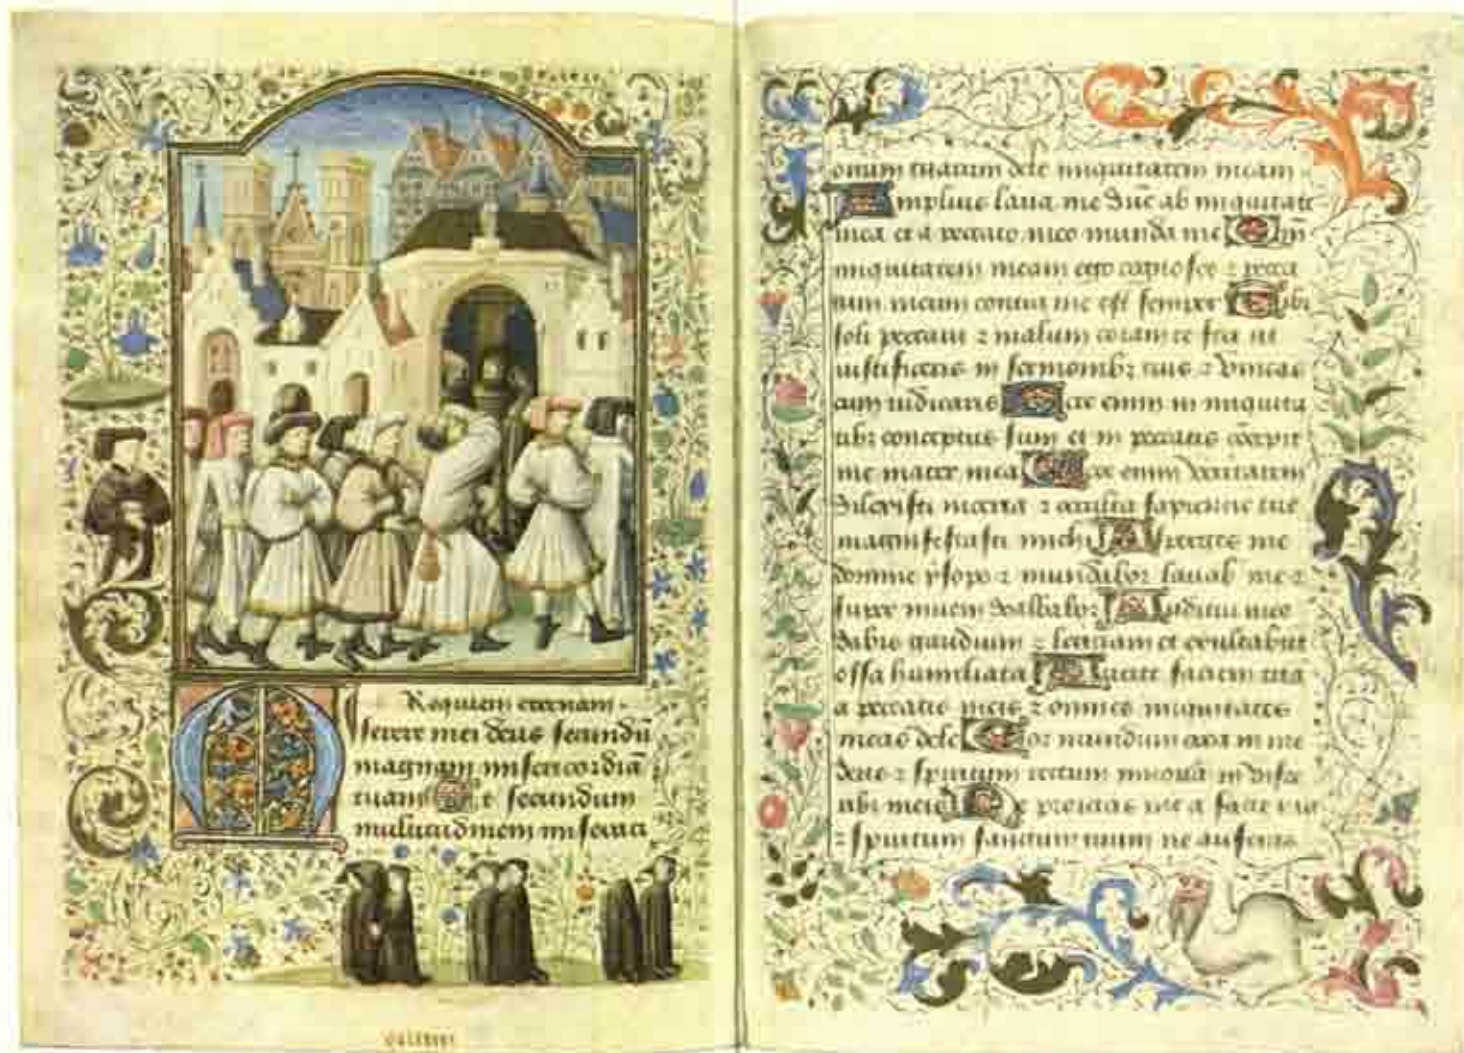 Requiem eternam
serere mei deus secundū
magnam misericordiā
tuam Et secundum
multitudinem miseraci
onum tuarum dele iniquitatem meam
Amplius laua me ab iniquitate
mea et a peccato meo munda me Qm̄
iniquitatem meam ego cognosco z pecca
tum meum contra me est semper Tibi
soli peccaui z malum coram te feci ut
iustificeris in sermonibz tuis z vincas
cum iudicaris Ecce enim in iniquita
tibz conceptus sum et in peccatis cōcepit
me mater mea Ecce enim veritatem
dilexisti incerta z occulta sapiencie tue
manifestasti michi Asperges me
domine ysopo z mundabor lauab me z
super niuem dealbabor Auditui meo
dabis gaudium z leticiam et exultabūt
ossa humiliata Auerte faciem tuā
a peccatis meis z omnes iniquitates
meas dele Cor mundum crea in me
deus z spiritum rectum innoua in visce
ribz meis Ne proicias me a facie tua
z spiritum sanctum tuum ne auferas